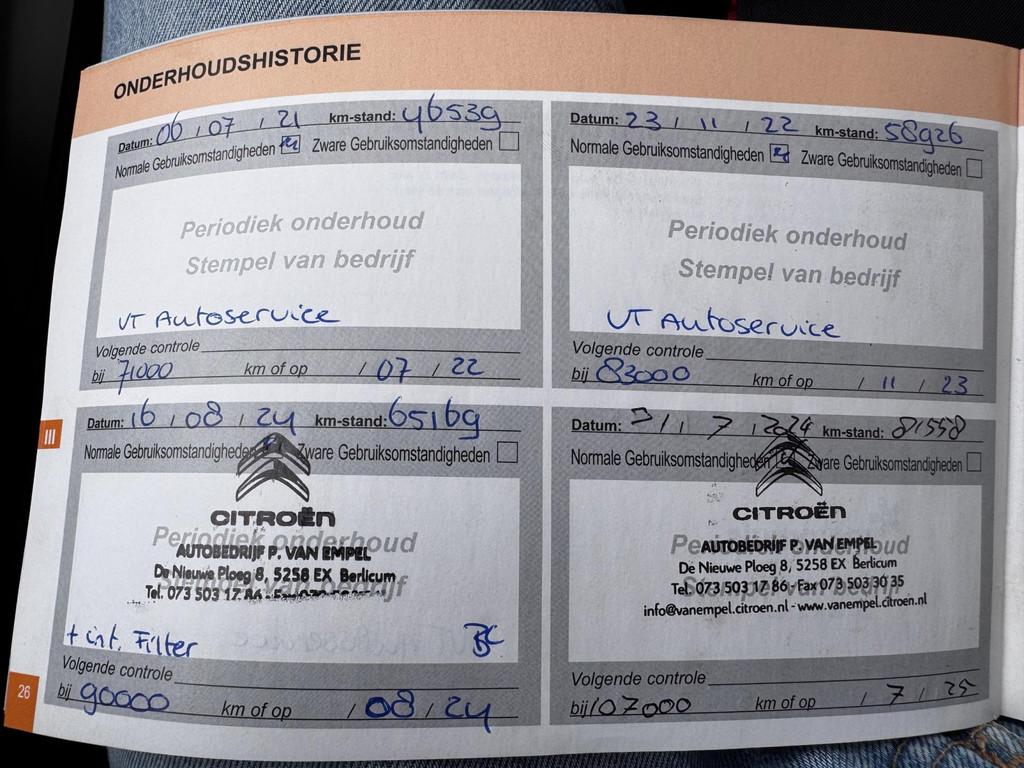 ONDERHOUDSHISTORIE
Datum: 06 / 07 / 21 km-stand: 46539
Normale Gebruiksomstandigheden Zware Gebruiksomstandigheden
Periodiek onderhoud
Stempel van bedrijf
VT Autoservice
Volgende controle
bij 71000 km of op / 07 / 22
Datum: 23 / 11 / 22 km-stand: 58926
Normale Gebruiksomstandigheden Zware Gebruiksomstandigheden
Periodiek onderhoud
Stempel van bedrijf
VT Autoservice
Volgende controle
bij 83000 km of op / 11 / 23
III
Datum: 16 / 08 / 24 km-stand: 65169
Normale Gebruiksomstandigheden Zware Gebruiksomstandigheden
CITROËN
Periodiek onderhoud
AUTOBEDRIJF P. VAN EMPEL
De Nieuwe Ploeg 8, 5258 EX Berlicum
Stempel van bedrijf
Tel. 073 503 17 86 - Fax
+ int. Filter
Volgende controle
bij 90000 km of op / 08 / 24
Datum: / 7 / 2024 km-stand: 81558
Normale Gebruiksomstandigheden Zware Gebruiksomstandigheden
CITROËN
Periodiek onderhoud
AUTOBEDRIJF P. VAN EMPEL
De Nieuwe Ploeg 8, 5258 EX Berlicum
Stempel van bedrijf
Tel. 073 503 17 86 - Fax 073 503 30 35
info@vanempel.citroen.nl - www.vanempel.citroen.nl
Volgende controle
bij 107000 km of op / 7 / 25
26